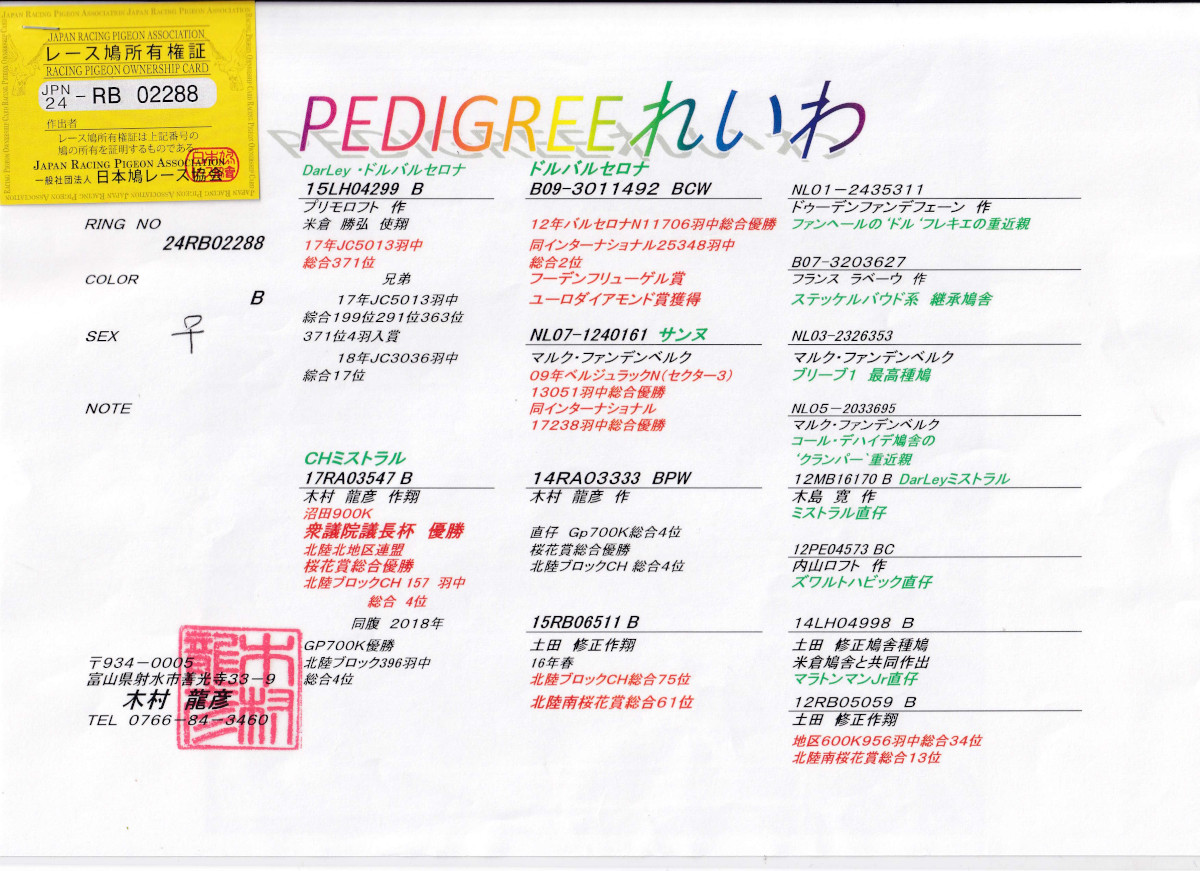 JAPAN RACING PIGEON ASSOCIATION
レース鳩所有権証
RACING PIGEON OWNERSHIP CARD
JPN
24 - RB 02288
作出者
レース鳩所有権証は上記番号の
鳩の所有を証明するものである。
JAPAN RACING PIGEON ASSOCIATION
一般社団法人 日本鳩レース協会
PEDIGREE れいわ
RING NO
24RB02288
COLOR
B
SEX
♀
NOTE
〒934-0005
富山県射水市善光寺33-9
木村 龍彦
TEL 0766-84-3460
木村
龍彦
DarLey・ドルバルセロナ
15LH04299 B
プリモロフト 作
米倉 勝弘 使翔
17年JC5013羽中
総合371位
兄弟
17年JC5013羽中
綜合199位291位363位
371位4羽入賞
18年JC3036羽中
綜合17位
CHミストラル
17RA03547 B
木村 龍彦 作翔
沼田900K
衆議院議長杯 優勝
北陸北地区連盟
桜花賞総合優勝
北陸ブロックCH 157 羽中
総合 4位
同腹 2018年
GP700K優勝
北陸ブロック396羽中
総合4位
ドルバルセロナ
B09-3011492 BCW
12年バルセロナN11706羽中総合優勝
同インターナショナル25348羽中
総合2位
フーデンフリューゲル賞
ユーロダイアモンド賞獲得
NL07-1240161 サンヌ
マルク・ファンデンベルク
09年ベルジュラックN(セクター3)
13051羽中総合優勝
同インターナショナル
17238羽中総合優勝
14RA03333 BPW
木村 龍彦 作
直仔 Gp700K総合4位
桜花賞総合優勝
北陸ブロックCH 総合4位
15RB06511 B
土田 修正作翔
16年春
北陸ブロックCH総合75位
北陸南桜花賞総合61位
NL01-2435311
ドゥーデンファンデフェーン 作
ファンヘールの‘ドル‘フレキエの重近親
B07-3203627
フランス ラベーウ 作
ステッケルバウド系 継承鳩舎
NL03-2326353
マルク・ファンデンベルク
ブリーブ1 最高種鳩
NL05-2033695
マルク・ファンデンベルク
コール・デハイデ鳩舎の
‘クランパー`重近親
12MB16170 B DarLeyミストラル
木島 寛 作
ミストラル直仔
12PE04573 BC
内山ロフト 作
ズワルトハビック直仔
14LH04998 B
土田 修正鳩舎種鳩
米倉鳩舎と共同作出
マラトンマンJr直仔
12RB05059 B
土田 修正作翔
地区600K956羽中総合34位
北陸南桜花賞総合13位